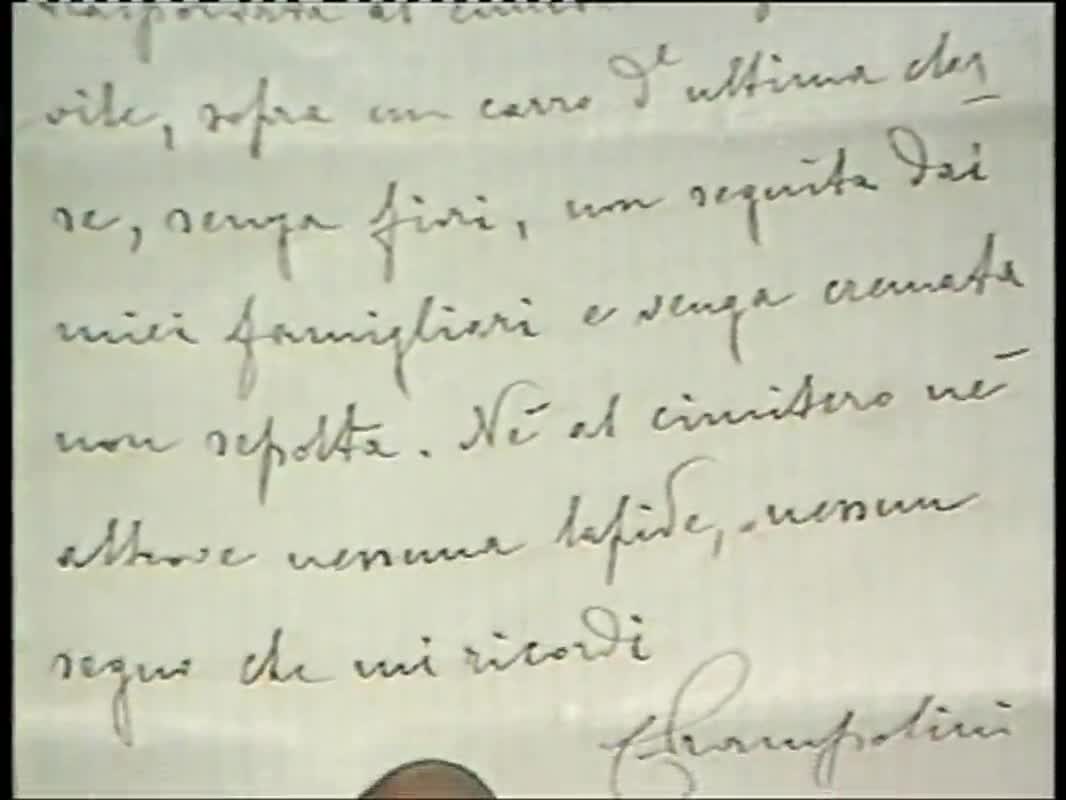 trasportata al cimitero
vile, sopra un carro d'ultima clas
se, senza fiori, non seguita dai
miei famigliari e venga cremata
non sepolta. Nè al cimitero nè
altrove nessuna lapide, nessun
segno che mi ricordi
CPrampolini